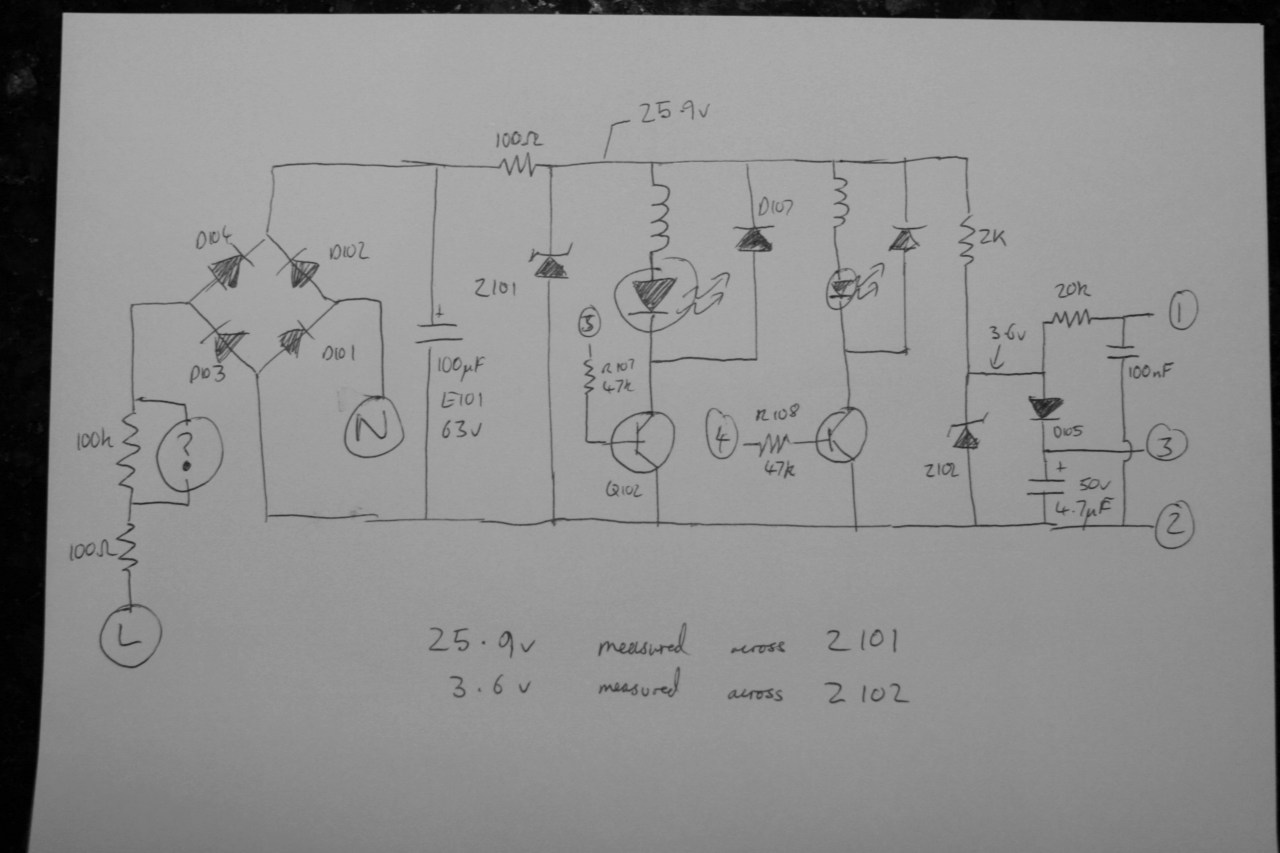 25.9v
100Ω
D104
D102
D107
2K
Z101
5
20k
1
3.6v
+
R107
47k
100nF
D103
D101
100µF
E101
63v
N
100k
?
4
R108
47k
D105
3
Z102
+
50v
4.7µF
Q102
2
100Ω
L
25.9v measured across Z101
3.6v measured across Z102